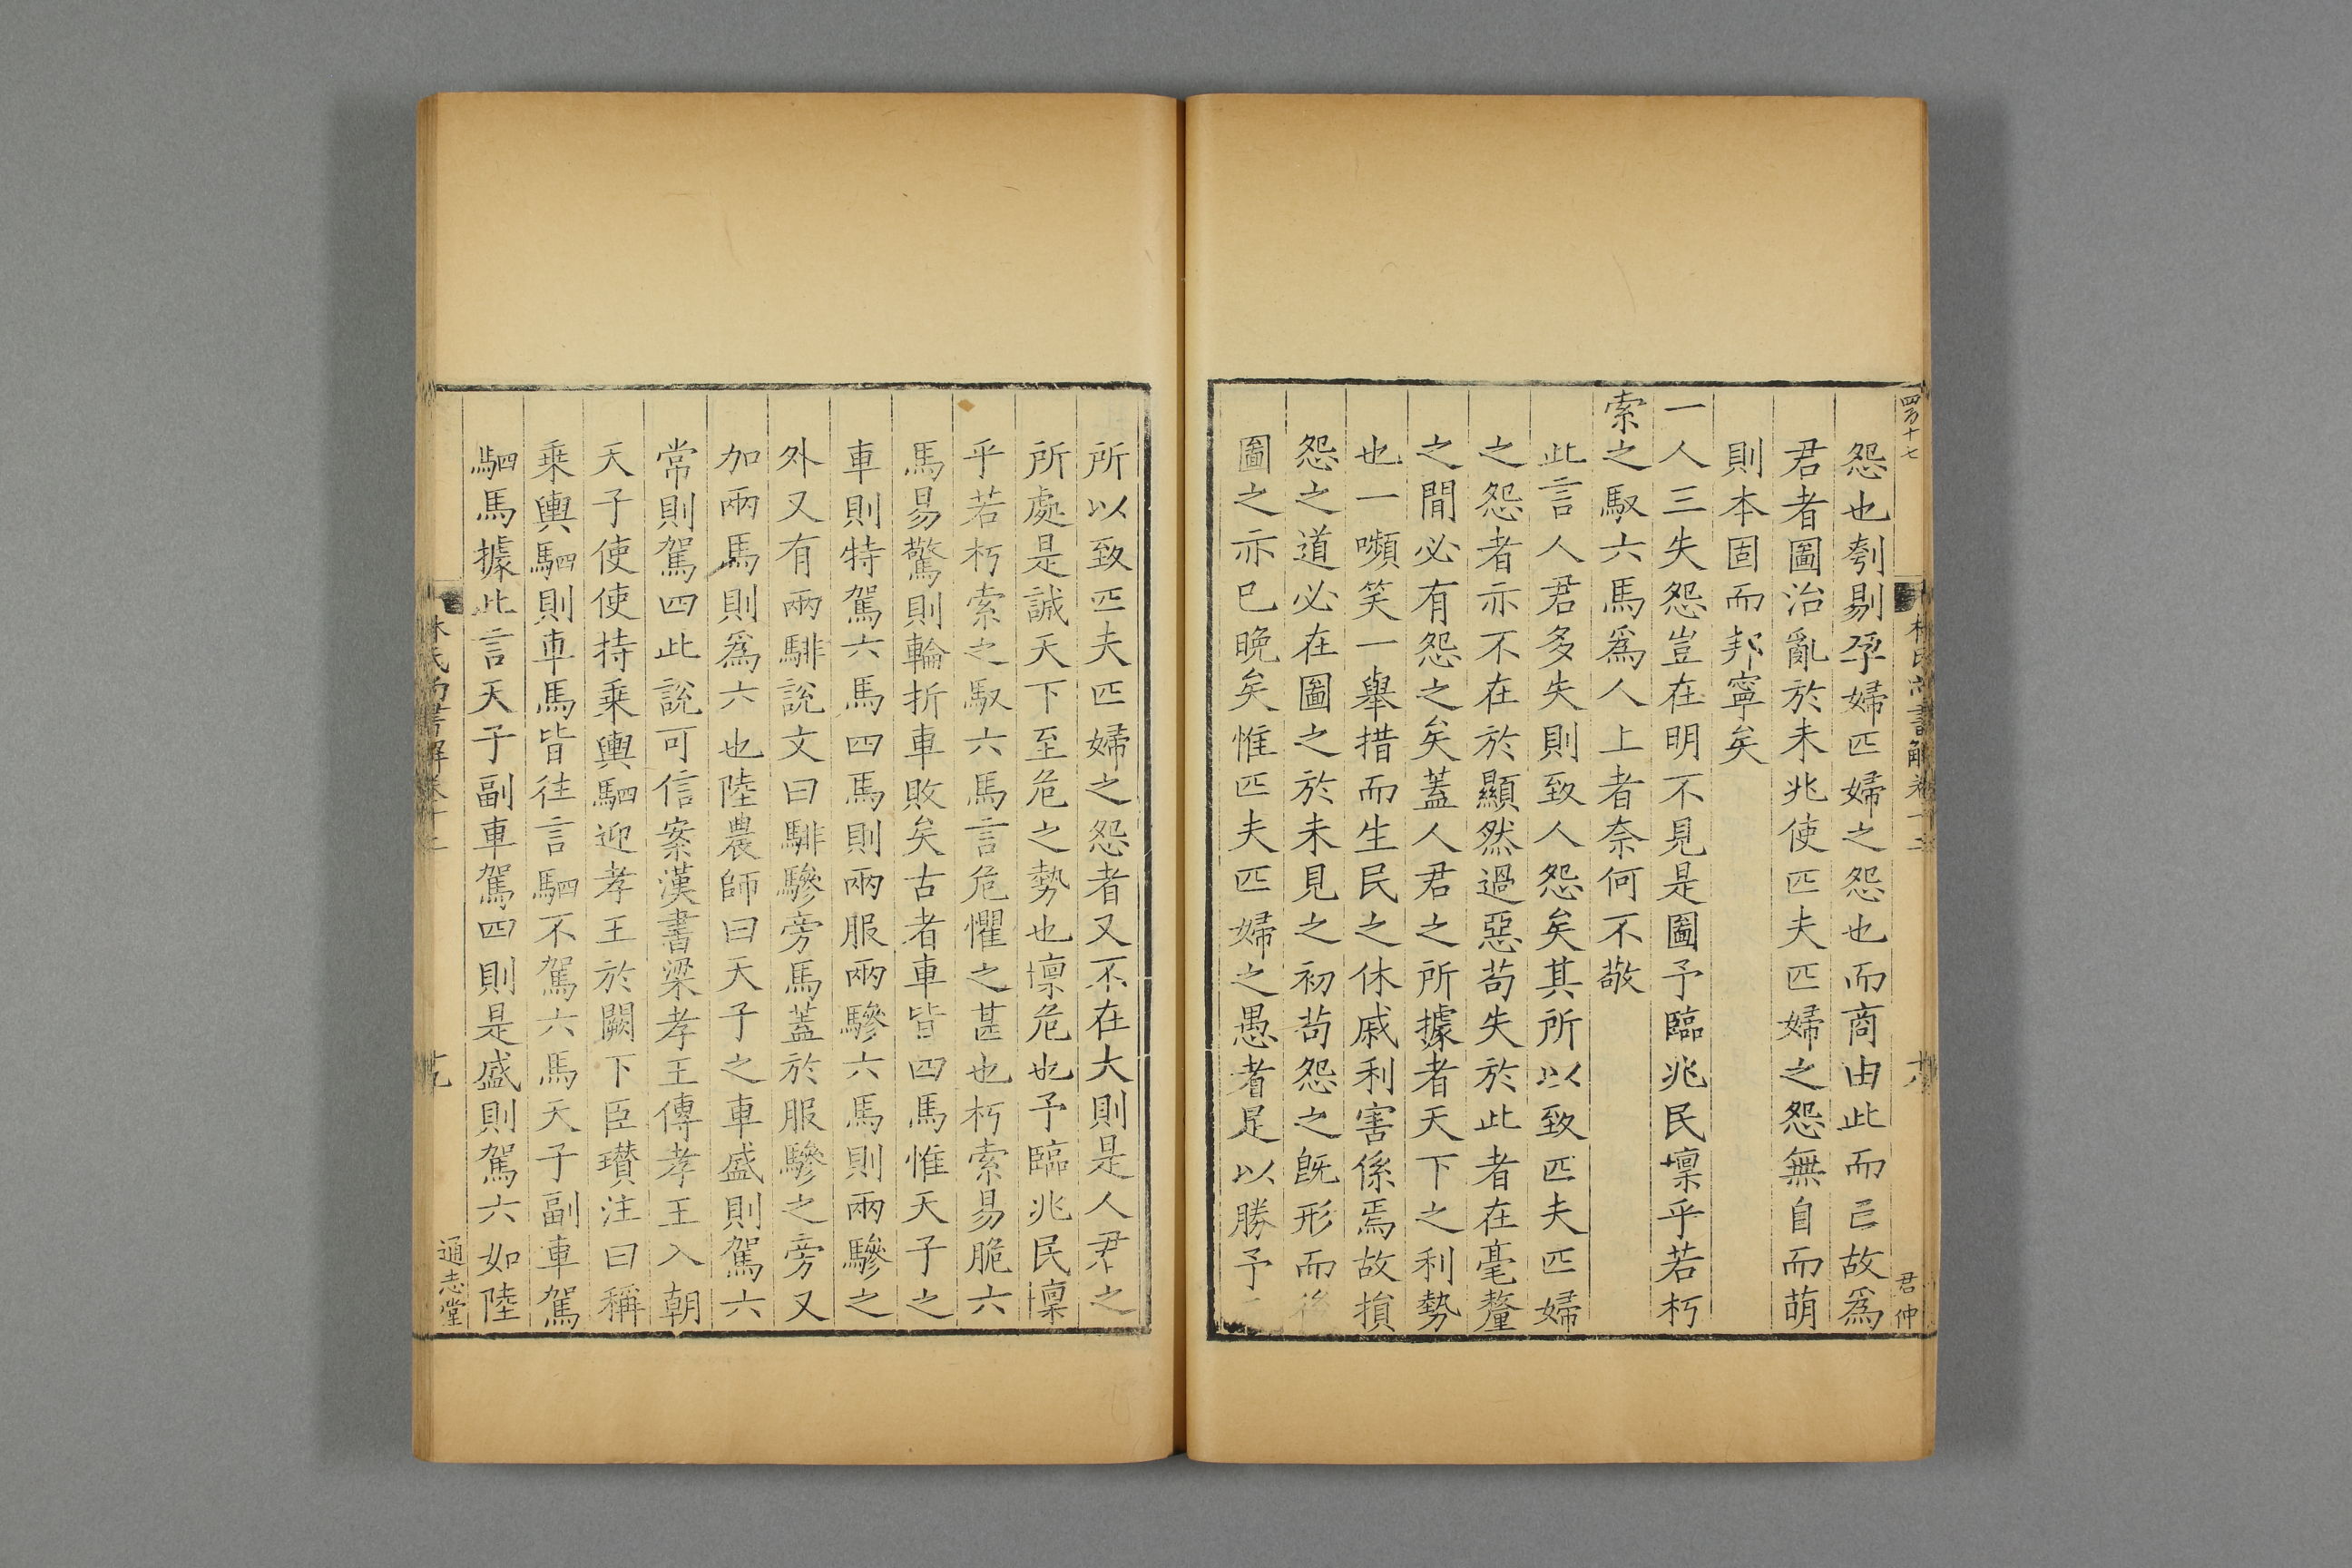 怨也刳剔孕婦匹婦之怨也而商由此而已故爲
君者圖治亂於未兆使匹夫匹婦之怨無自而萌
則本固而邦寧矣
一人三失怨豈在明不見是圖予臨兆民懍乎若朽
索之馭六馬爲人上者奈何不敬
此言人君多失則致人怨矣其所以致匹夫匹婦
之怨者亦不在於顯然過惡苟失於此者在毫釐
之間必有怨之矣蓋人君之所據者天下之利勢
也一嚬笑一舉措而生民之休戚利害係焉故損
怨之道必在圖之於未見之初苟怨之旣形而後
圖之亦已晚矣惟匹夫匹婦之愚者是以勝予
君仲
所以致匹夫匹婦之怨者又不在大則是人君之
所處是誠天下至危之勢也懍危也予臨兆民懍
乎若朽索之馭六馬言危懼之甚也朽索易脆六
馬易驚馬驚則輪折車敗矣古者車皆四馬惟天子之
車則特駕六馬四馬則兩服兩驂六馬則兩驂之
外又有兩騑說文曰騑驂旁馬蓋於服驂之旁又
加兩馬則爲六也陸農師曰天子之車盛則駕六
常則駕四此說可信案漢書梁孝王傳孝王入朝
天子使使持乗輿駟迎孝王於闕下臣瓚注曰稱
乗輿駟則車馬皆往言駟不駕六馬天子副車駕
駟馬據此言天子副車駕四則是盛則駕六如陸
林氏尚書解卷十二
通志堂